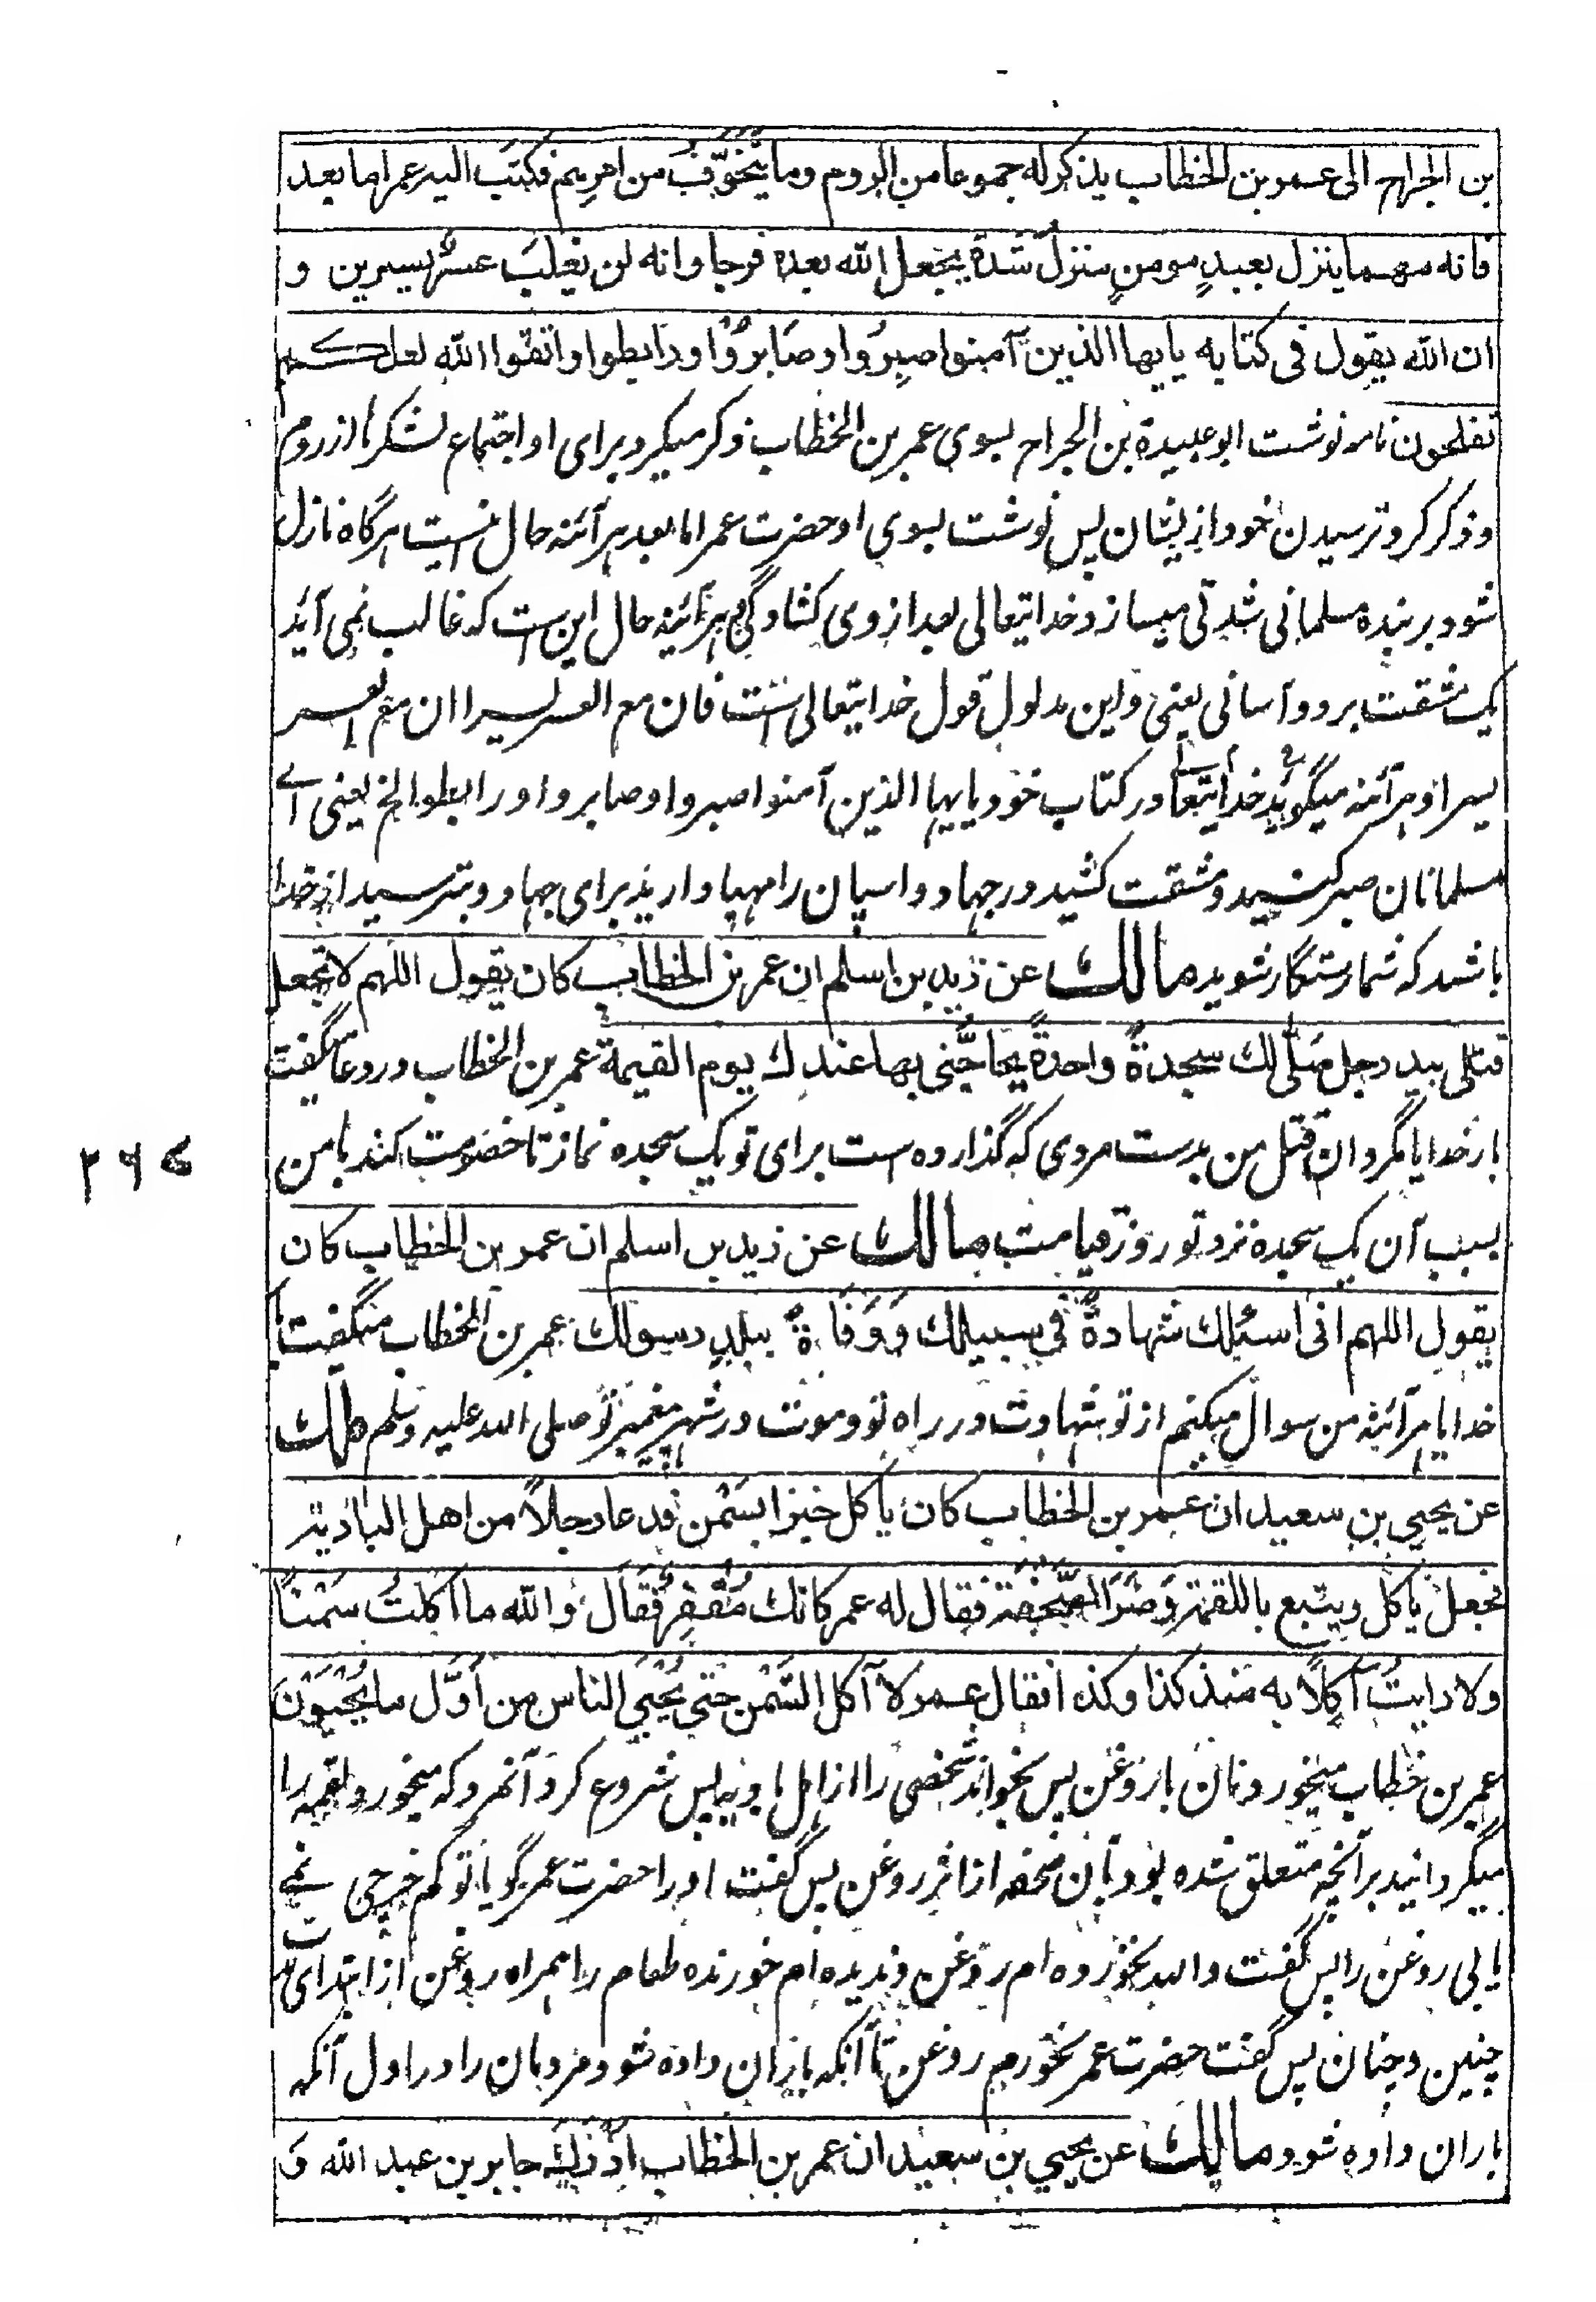 بن الجراح الى عمر بن الخطاب يذكر له جموعا من الروم وما يتخوّف من امرهم فكتب اليه عمر اما بعد
فانه مهما ينزل بعبدٍ مومنٍ منزلُ شدةٍ يجعل الله بعده فرجا وانه لن يغلبَ عسرٌ يسيرين و
ان الله يقول فى كتابه يايها الذين آمنوا اصبِرُوا وصَابرُوْا ورابطوا واتقوا الله لعلكم
تفلحون نامه نوشت ابو عبيدة بن الجراح بسوى عمر بن الخطاب ذكر ميكرد براى او اجتماع لشكرها از روم
وذكر كرد ترسيدن خود از ايشان پس نوشت بسوى او حضرت عمر اما بعد هر آئنه حال اينست هرگاه نازل
شود بر بنده مسلمانى شدتى ميسازد خدايتعالى بعد ازوى كشادگى هر آئنه حال اين ست كه غالب نمى آيد
يك مشقت بر دو آسانى يعنى واين مدلول قول خدايتعالى است فان مع العسر يسرا ان مع العسر
يسرا و هر آئنه ميگويد خدايتعالى در كتاب خود يايها الذين آمنوا اصبروا وصابروا ورابطوا الخ يعنى اے
مسلمانان صبر كنيد و مشقت كشيد در جهاد و اسپان را مهيا داريد براى جهاد و بترسيد از خدا
باشد كه شما رستگار شويد مالك عن زيد بن اسلم ان عمر بن الخطاب كان يقول اللهم لا تجعل
قتلى بيد رجل صَلّى لك سجدةً واحدةً يحاجُّنى بها عندك يوم القيمة عمر بن الخطاب در دعا ميگفت
بار خدايا مگردان قتل من بدست مردى كه گذارده ست براى تو يك سجده نماز تا خصومت كند با من
بسبب آن يك سجده نزد تو روز قيامت مالك عن زيد بن اسلم ان عمر بن الخطاب كان
يقول اللهم انى اسئلك شهادةً فى سبيلك وَوَفَاةً ببلدِ رسولك عمر بن الخطاب ميگفت
خدايا هر آئنه من سوال ميكنم از تو شهادت در راه تو و موت در شهر پيغمبر تو صلى الله عليه وسلم مالك
عن يحيى بن سعيد ان عمر بن الخطاب كان يأكل خبزا بسَمْن فدعا رجلاً من اهل البادية
فجعل ياكل ويتبع باللقمة وَضَرَ الصَّحْفَة فقال له عمر كانك مُقْفِرٌ فقال والله ما اكلتُ سَمْنًا
ولا رايتُ آكِلاً به منذ كذا وكذا فقال عمر لا آكل السَّمْن حتى يُحْيَى الناس من أوّل ما يُحْيَوْنَ
عمر بن خطاب ميخورد نان با روغن پس بخواند شخصى را از اهل باديه پس شروع كرد آنمرد كه ميخورد و لقمه را
ميگردانيد بر آنچه متعلق شده بود بآن صحفه از اثر روغن پس گفت اورا حضرت عمر گويا تو كم خرچى نمے
يابى روغن را پس گفت والله نخورده ام روغن و نديده ام خورنده طعام را همراه روغن از ابتداى مدت
چنين و چنان پس گفت حضرت عمر نخورم روغن تا آنكه باران داده شود مردمان را در اول آنكه
باران داده شود مالك عن يحيى بن سعيد ان عمر بن الخطاب ادرك جابر بن عبد الله و
٢٦٤